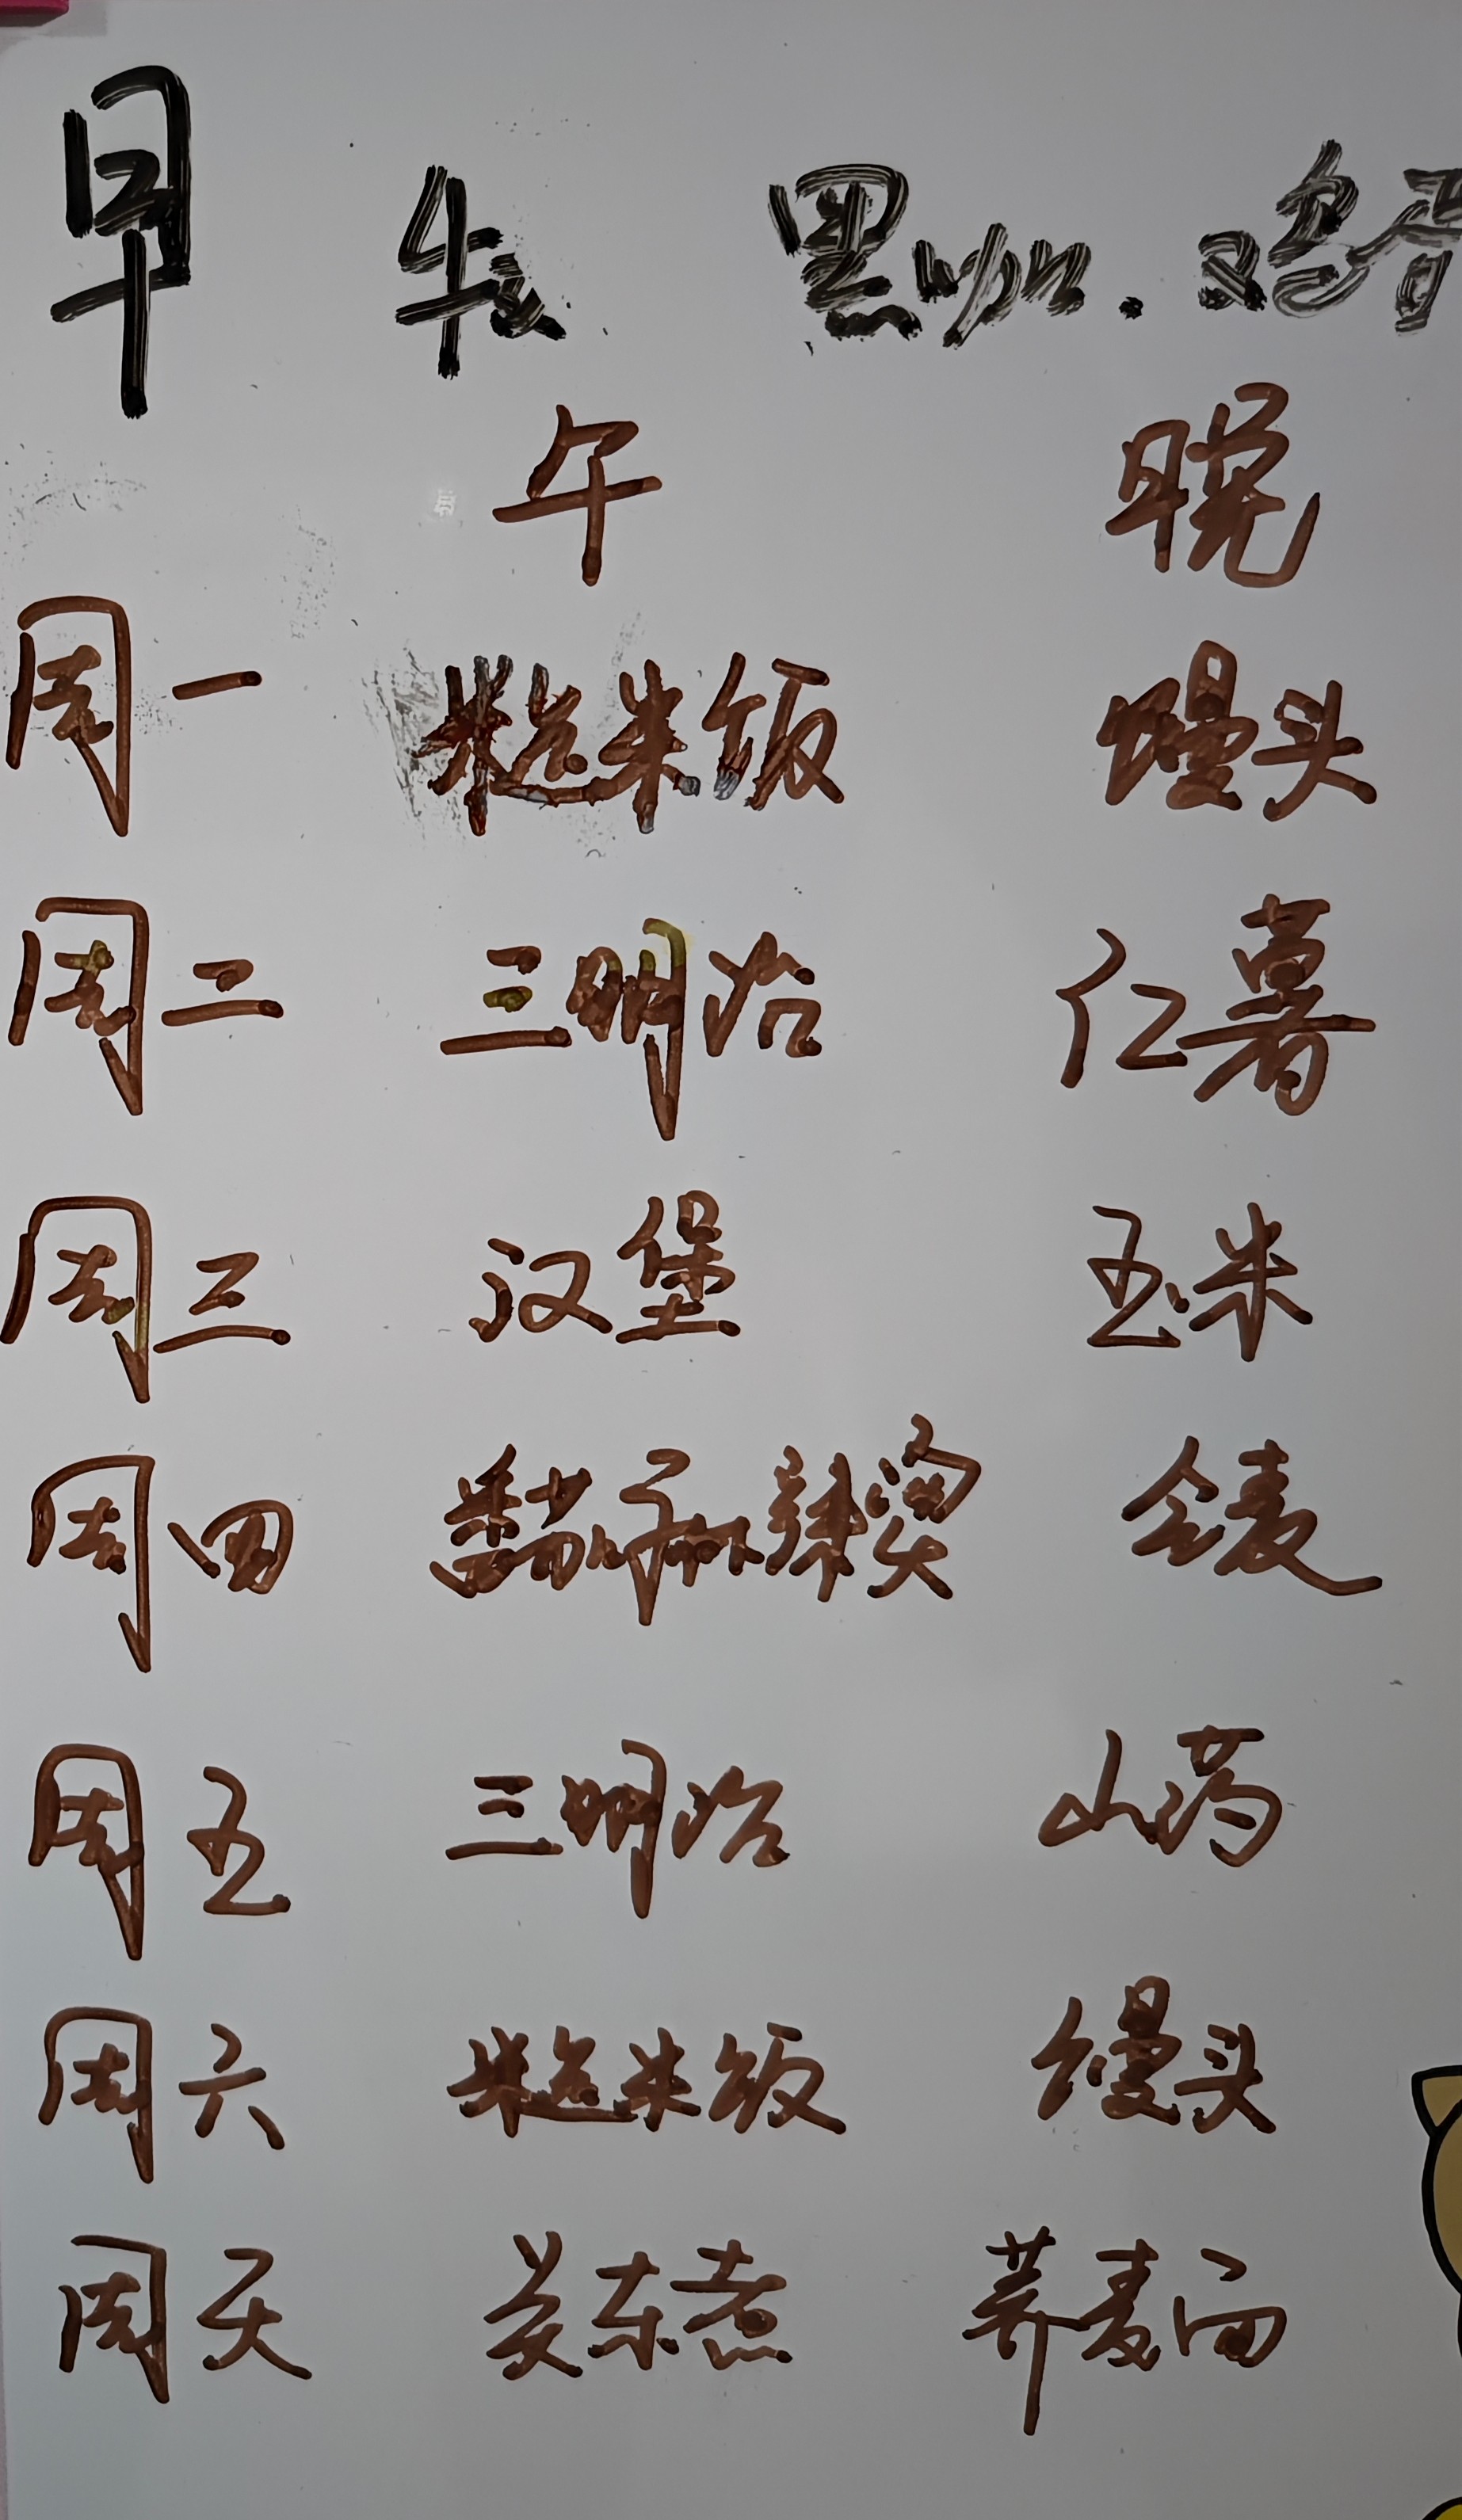 早 黑咖.鸡蛋
午 晚
周一 糙米饭 馒头
周二 三明治 红薯
周三 汉堡 玉米
周四 麻辣烫 全麦
周五 三明治 山药
周六 糙米饭 馒头
周天 关东煮 荞麦面